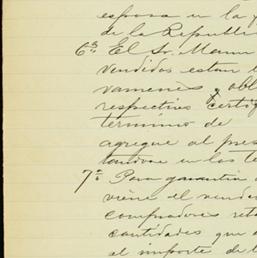 esposa en la
de la Republi
6ª El Sr. Mann
vendidos estan
vamenes y obl
respectivo certif
termino de
agregue al pres
tandose en los te
7ª Para garantia d
viene el vended
compradores ret
cantidades que
al importe de